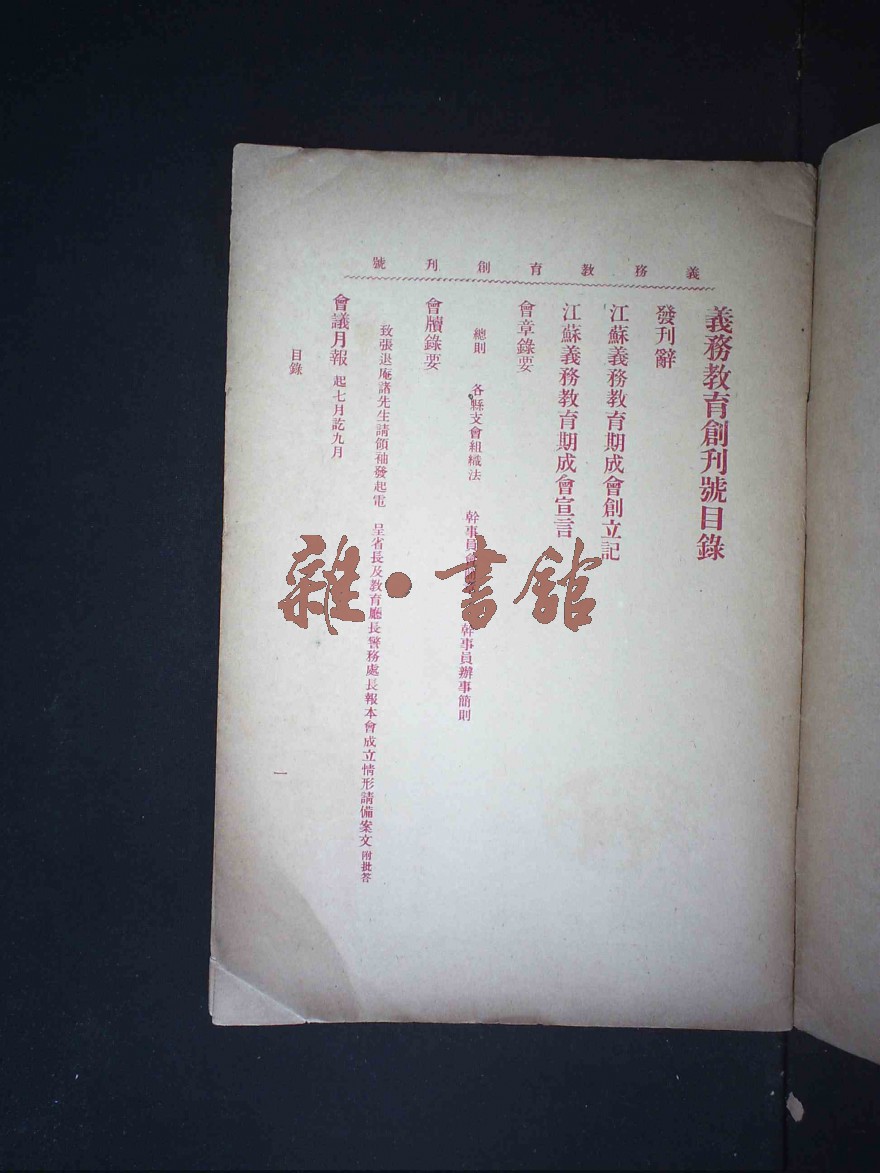 義務教育創刊號
義務教育創刊號目錄
發刊辭
江蘇義務教育期成會創立記
江蘇義務教育期成會宣言
會章錄要
總則　各縣支會組織法　幹事員會　幹事員辦事簡則
會牘錄要
致張退庵諸先生請領袖發起電　呈省長及教育廳長警務處長報本會成立情形請備案文 附批答
會議月報 起七月訖九月
目錄
一
雜·書館